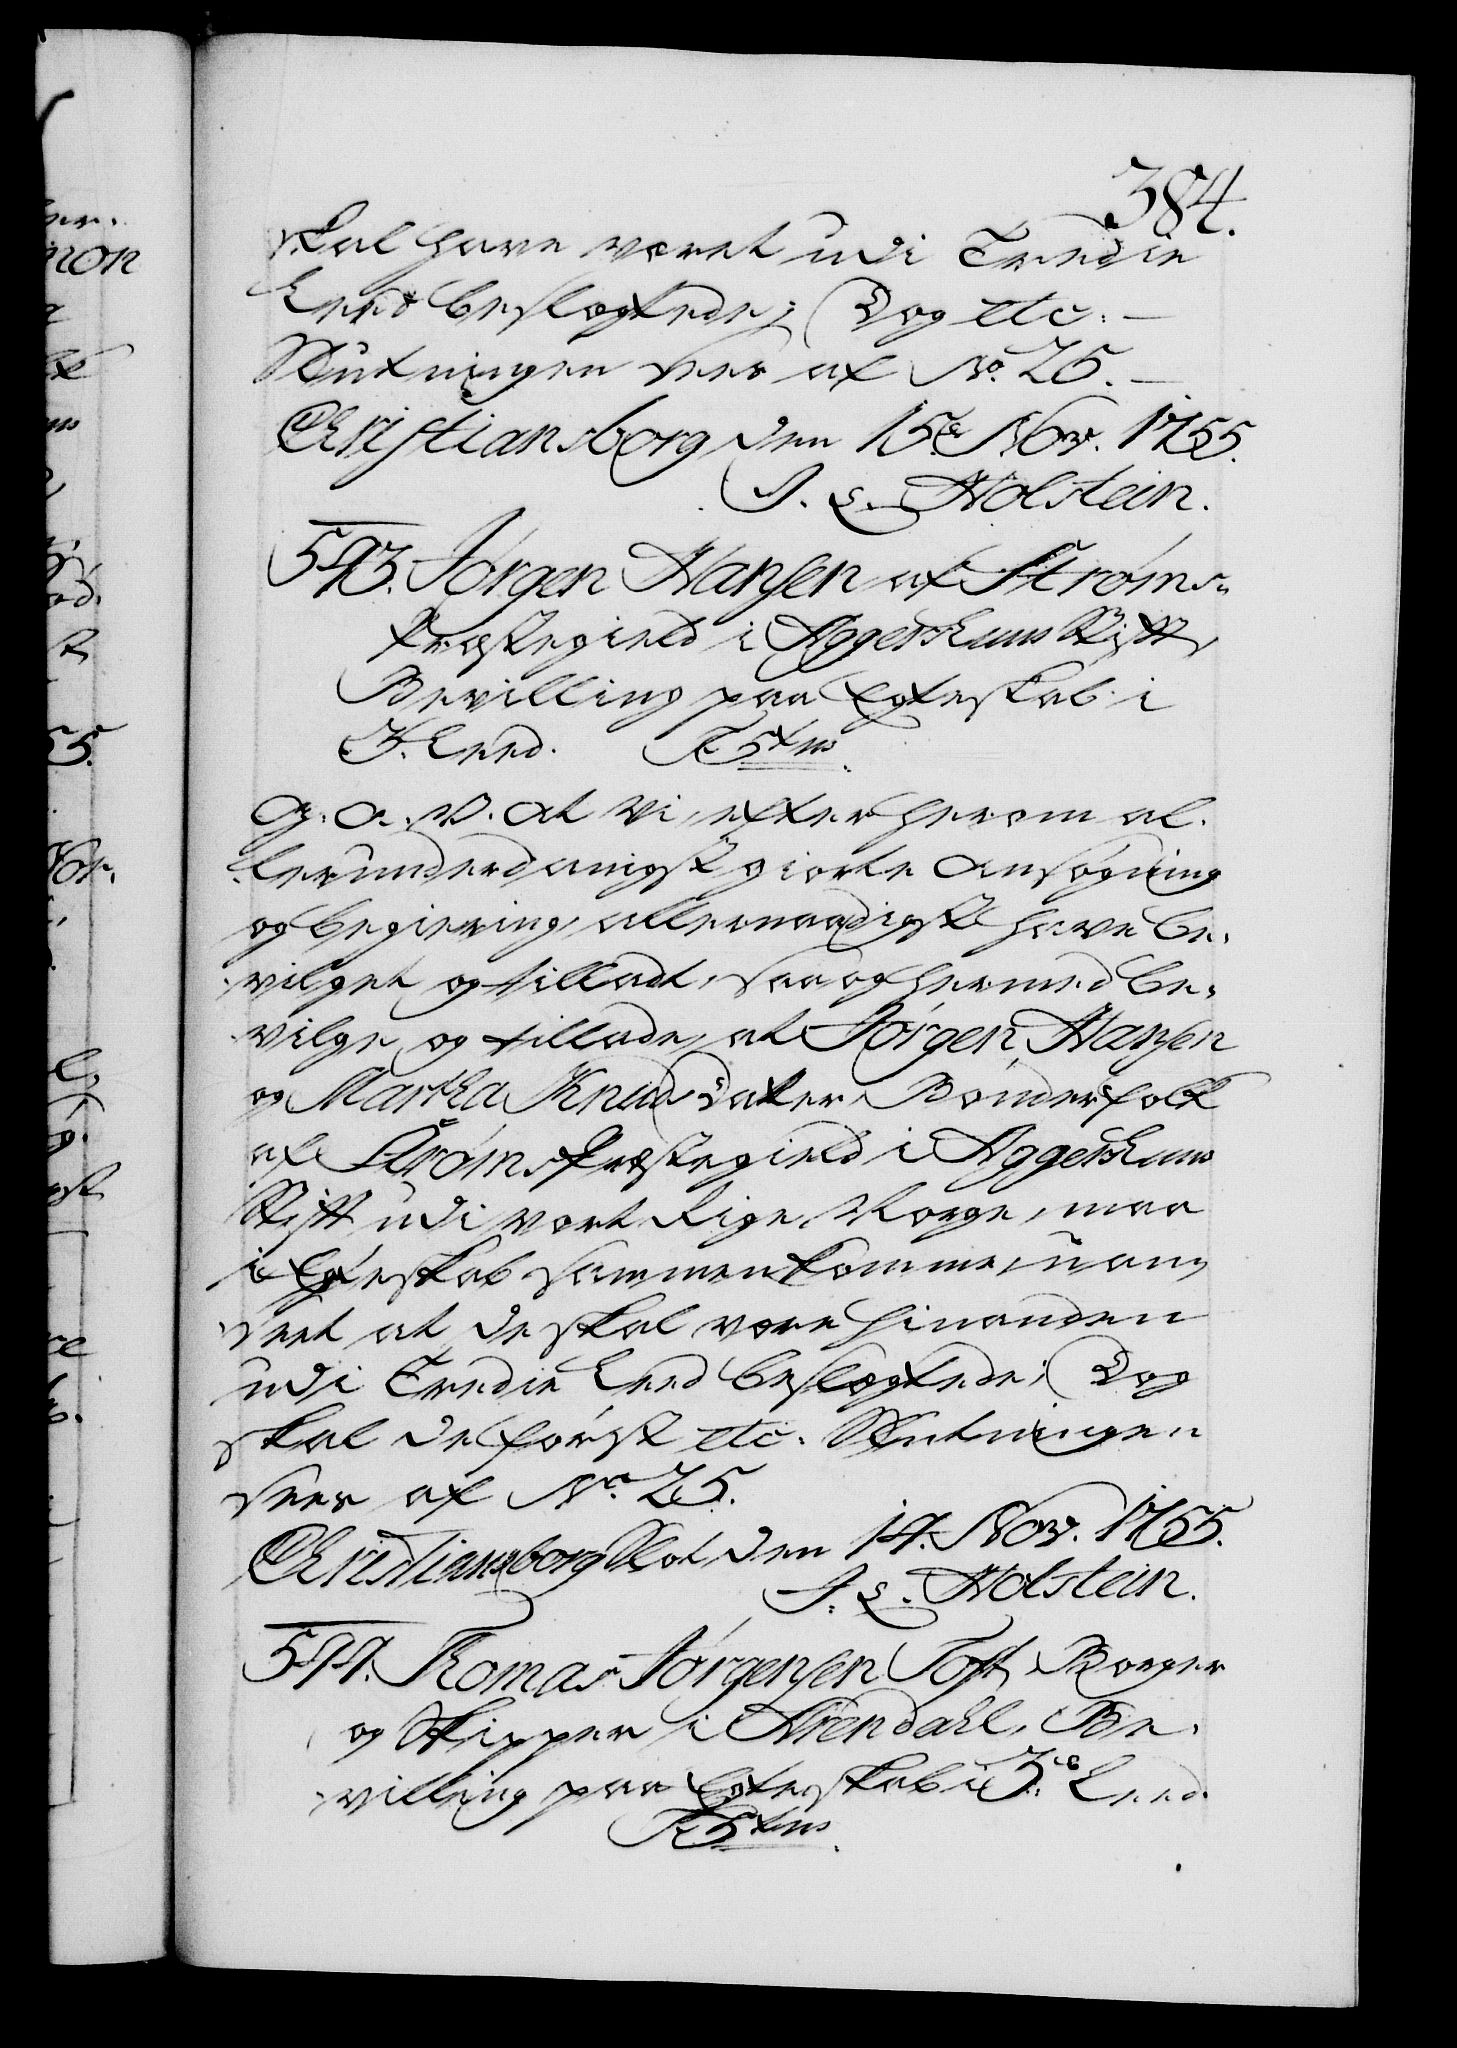 384.
skal have været udi Tredie
Leed beslægtede; Dog etc. —
Slutningen sees af No. 25. —
Christiansborg den 15de Nov. 1755.
J. L. Holstein.
543. Jørgen Hansen af Strøms-
Præstegield i Aggershuus Stift,
Bevilling paa Egteskab i
3. Leed.
G. A. V. At Vi, efter herom al-
lerunderdanigst giorte Ansøgning
og begiering, allernaadigst have be-
vilget og tilladt, saa og hermed be-
vilge og tillade, at Jørgen Hansen
og Martha Knuds Datter, Bønderfolk
af Strøms Præstegield i Aggershuus
Stift udi vort Rige Norge, maa
i Egteskab sammenkomme, uan-
seet at de skal være hinanden
udi Tredie Leed beslægtede; Dog
skal de først etc. Slutningen
sees af No. 25.
Christiansborg Slot den 14. Nov. 1755.
J. L. Holstein.
544. Thomas Jørgensen Toft, Borger
og Skipper i Arendahl, Be-
villing paa Egteskab i 3de Leed.